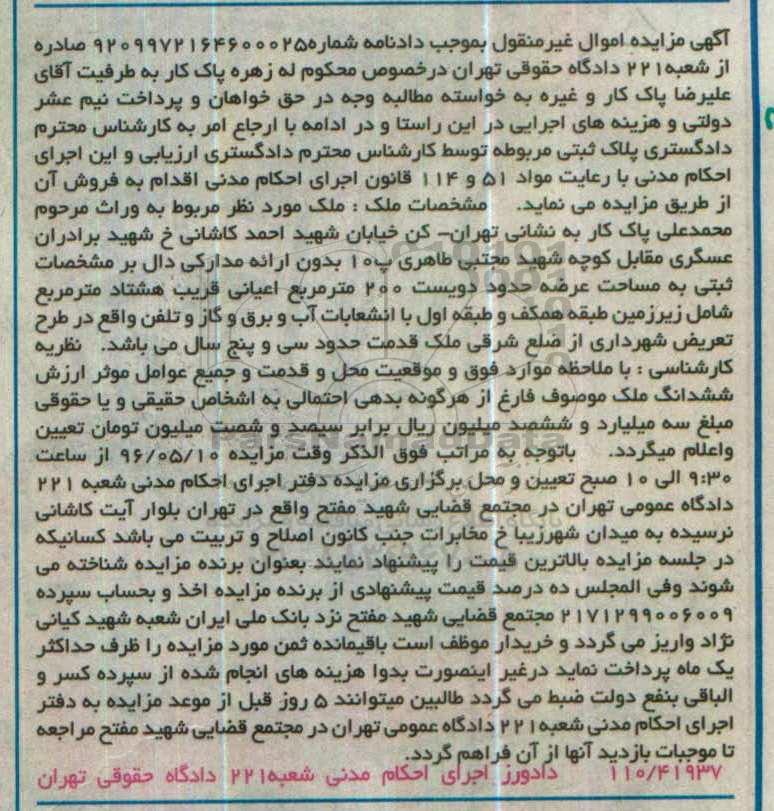 آگهی مزایده اموال غیرمنقول بموجب دادنامه شماره۹۲۰۹۹۷۲۱۶۴۶۰۰۰۲۵ صادره
از شعبه۲۲۱ دادگاه حقوقی تهران درخصوص محکوم له زهره پاک کار به طرفیت آقای
علیرضا پاک کار و غیره به خواسته مطالبه وجه در حق خواهان و پرداخت نیم عشر
دولتی و هزینه های اجرایی در این راستا و در ادامه با ارجاع امر به کارشناس محترم
دادگستری پلاک ثبتی مربوطه توسط کارشناس محترم دادگستری ارزیابی و این اجرای
احکام مدنی با رعایت مواد ۵۱ و ۱۱۴ قانون اجرای احکام مدنی اقدام به فروش آن
از طریق مزایده می نماید. مشخصات ملک : ملک مورد نظر مربوط به وراث مرحوم
محمدعلی پاک کار به نشانی تهران- کن خیابان شهید احمد کاشانی خ شهید برادران
عسگری مقابل کوچه شهید مجتبی طاهری پ۱۰ بدون ارائه مدارکی دال بر مشخصات
ثبتی به مساحت عرصه حدود دویست ۲۰۰ مترمربع اعیانی قریب هشتاد مترمربع
شامل زیرزمین طبقه همکف و طبقه اول با انشعابات آب و برق و گاز و تلفن واقع در طرح
تعریض شهرداری از ضلع شرقی ملک قدمت حدود سی و پنج سال می باشد. نظریه
کارشناسی : با ملاحظه موارد فوق و موقعیت محل و قدمت و جمیع عوامل موثر ارزش
ششدانگ ملک موصوف فارغ از هرگونه بدهی احتمالی به اشخاص حقیقی و یا حقوقی
مبلغ سه میلیارد و ششصد میلیون ریال برابر سیصد و شصت میلیون تومان تعیین
واعلام میگردد. باتوجه به مراتب فوق الذکر وقت مزایده ۹۶/۰۵/۱۰ از ساعت
۹:۳۰ الی ۱۰ صبح تعیین و محل برگزاری مزایده دفتر اجرای احکام مدنی شعبه ۲۲۱
دادگاه عمومی تهران در مجتمع قضایی شهید مفتح واقع در تهران بلوار آیت کاشانی
نرسیده به میدان شهرزیبا خ مخابرات جنب کانون اصلاح و تربیت می باشد کسانیکه
در جلسه مزایده بالاترین قیمت را پیشنهاد نمایند بعنوان برنده مزایده شناخته می
شوند وفی المجلس ده درصد قیمت پیشنهادی از برنده مزایده اخذ و بحساب سپرده
۲۱۷۱۲۹۹۰۰۶۰۰۹ مجتمع قضایی شهید مفتح نزد بانک ملی ایران شعبه شهید کیانی
نژاد واریز می گردد و خریدار موظف است باقیمانده ثمن مورد مزایده را ظرف حداکثر
یک ماه پرداخت نماید درغیر اینصورت بدوا هزینه های انجام شده از سپرده کسر و
الباقی بنفع دولت ضبط می گردد طالبین میتوانند ۵ روز قبل از موعد مزایده به دفتر
اجرای احکام مدنی شعبه۲۲۱ دادگاه عمومی تهران در مجتمع قضایی شهید مفتح مراجعه
تا موجبات بازدید آنها از آن فراهم گردد.
۱۱۰/۴۱۹۳۷ دادورز اجرای احکام مدنی شعبه۲۲۱ دادگاه حقوقی تهران
ParsNamadData